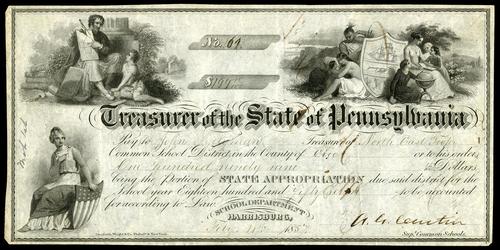 No. 69
$199
Treasurer of the State of Pennsylvania
Pay to John Treasurer of North East Twp
Common School District in the County of Erie or to his order,
One hundred ninety nine Dollars
being the portion of STATE APPROPRIATION due said district for the
School year Eighteen Hundred and to be accounted
for according to Law.
SCHOOL DEPARTMENT
HARRISBURG,
185
Sup. Common Schools.